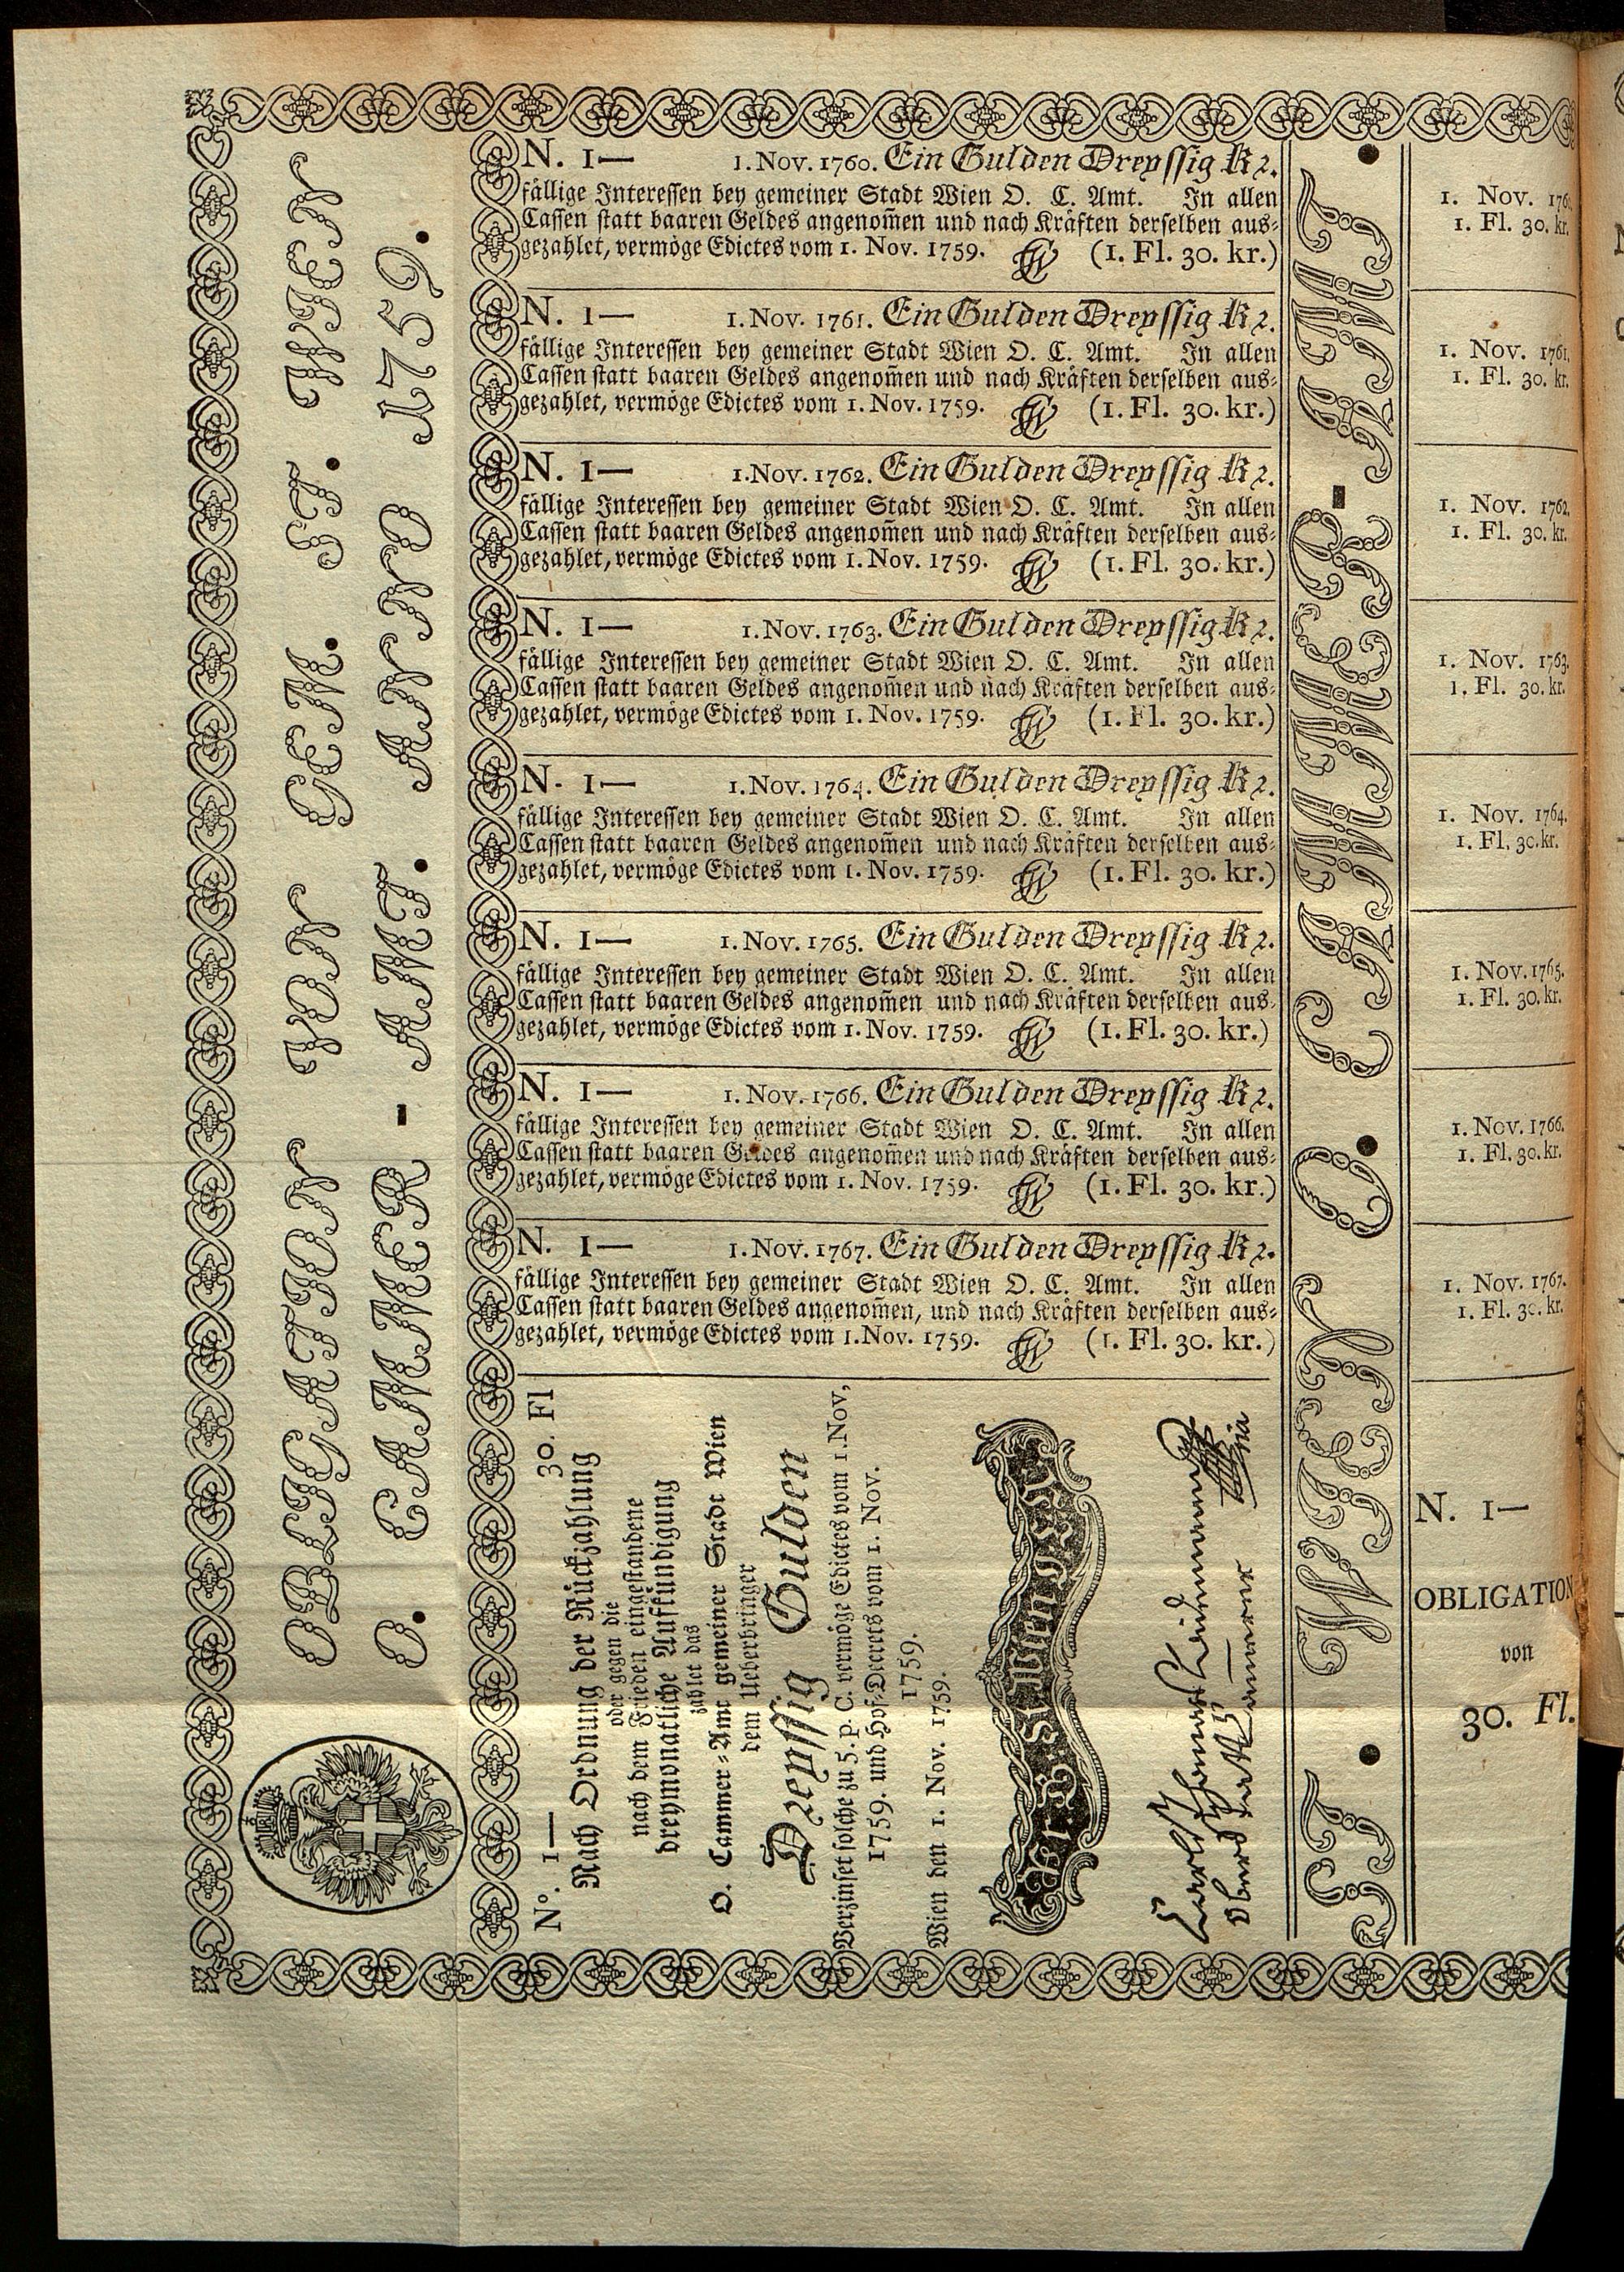 OBLIGATION VON GEM. ST. WIEN
O. CAMMER - AMT. ANNO 1759.
N. 1— 1. Nov. 1760. Ein Gulden Dreyssig Kr.
fällige Interessen bey gemeiner Stadt Wien O. C. Amt. In allen
Cassen statt baaren Geldes angenom̄en und nach Kräften derselben aus-
gezahlet, vermöge Edictes vom 1. Nov. 1759. (1. Fl. 30. kr.)
N. 1— 1. Nov. 1761. Ein Gulden Dreyssig Kr.
fällige Interessen bey gemeiner Stadt Wien O. C. Amt. In allen
Cassen statt baaren Geldes angenom̄en und nach Kräften derselben aus-
gezahlet, vermöge Edictes vom 1. Nov. 1759. (1. Fl. 30. kr.)
N. 1— 1. Nov. 1762. Ein Gulden Dreyssig Kr.
fällige Interessen bey gemeiner Stadt Wien O. C. Amt. In allen
Cassen statt baaren Geldes angenom̄en und nach Kräften derselben aus-
gezahlet, vermöge Edictes vom 1. Nov. 1759. (1. Fl. 30. kr.)
N. 1— 1. Nov. 1763. Ein Gulden Dreyssig Kr.
fällige Interessen bey gemeiner Stadt Wien O. C. Amt. In allen
Cassen statt baaren Geldes angenom̄en und nach Kräften derselben aus-
gezahlet, vermöge Edictes vom 1. Nov. 1759. (1. Fl. 30. kr.)
N. 1— 1. Nov. 1764. Ein Gulden Dreyssig Kr.
fällige Interessen bey gemeiner Stadt Wien O. C. Amt. In allen
Cassen statt baaren Geldes angenom̄en und nach Kräften derselben aus-
gezahlet, vermöge Edictes vom 1. Nov. 1759. (1. Fl. 30. kr.)
N. 1— 1. Nov. 1765. Ein Gulden Dreyssig Kr.
fällige Interessen bey gemeiner Stadt Wien O. C. Amt. In allen
Cassen statt baaren Geldes angenom̄en und nach Kräften derselben aus-
gezahlet, vermöge Edictes vom 1. Nov. 1759. (1. Fl. 30. kr.)
N. 1— 1. Nov. 1766. Ein Gulden Dreyssig Kr.
fällige Interessen bey gemeiner Stadt Wien O. C. Amt. In allen
Cassen statt baaren Geldes angenom̄en und nach Kräften derselben aus-
gezahlet, vermöge Edictes vom 1. Nov. 1759. (1. Fl. 30. kr.)
N. 1— 1. Nov. 1767. Ein Gulden Dreyssig Kr.
fällige Interessen bey gemeiner Stadt Wien O. C. Amt. In allen
Cassen statt baaren Geldes angenom̄en, und nach Kräften derselben aus-
gezahlet, vermöge Edictes vom 1. Nov. 1759. (1. Fl. 30. kr.)
N°. 1— 30. Fl
Nach Ordnung der Rückzahlung
oder gegen die
nach dem Frieden eingestandene
dreymonatliche Aufkündigung
zahlet das
O. Cammer-Amt gemeiner Stadt Wien
dem Ueberbringer
Dreyssig Gulden
Verzinset solche zu 5. p. C. vermöge Edictes vom 1. Nov.
1759. und Hof-Decrets vom 1. Nov.
1759.
Wien den 1. Nov. 1759.
Der K. St. Wien
Ober
ST. WIENER O. CAMMER-AMT
1. Nov. 176
1. Fl. 30. kr.
1. Nov. 1761.
1. Fl. 30. kr.
1. Nov. 1762.
1. Fl. 30. kr.
1. Nov. 1763.
1. Fl. 30. kr.
1. Nov. 1764.
1. Fl. 30. kr.
1. Nov. 1765.
1. Fl. 30. kr.
1. Nov. 1766.
1. Fl. 30. kr.
1. Nov. 1767.
1. Fl. 30. kr.
N. 1—
OBLIGATION
von
30. Fl.